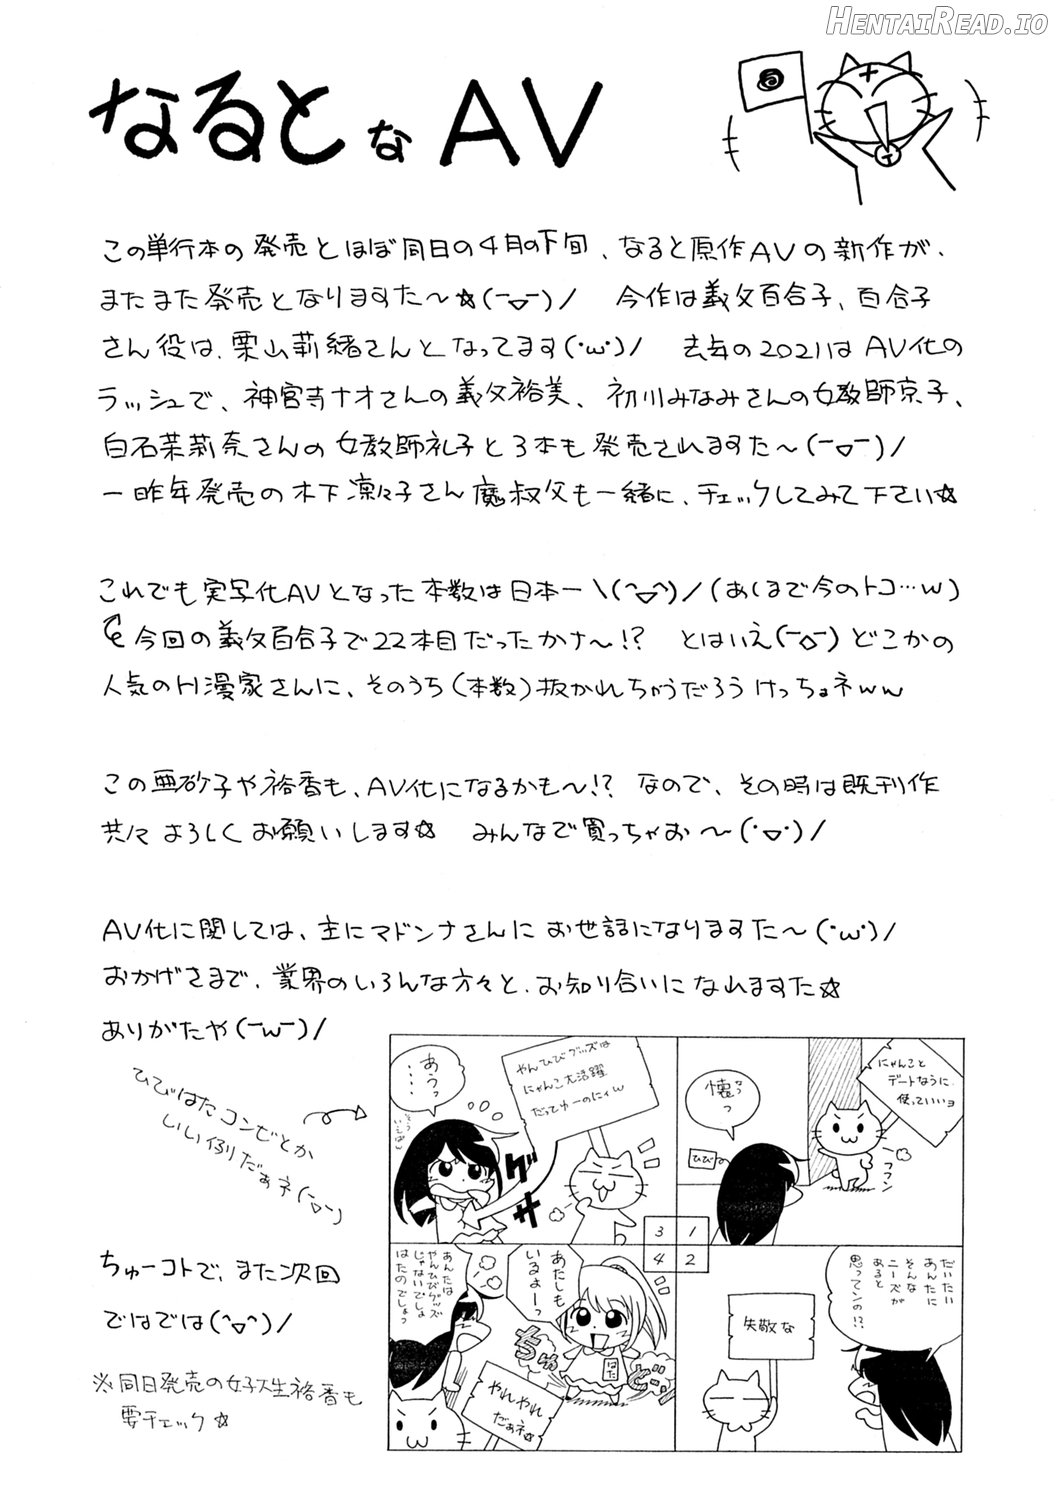 HENTAIREAD.IO
なるとなAV
この単行本の発売とほぼ同日の4月の下旬、なると原作AVの新作が、
またまた発売となりますた〜☆(￣▽￣)/ 今作は義父百合子、百合子
さん役は、栗山莉緒さんとなってます(・ω・)/ 去年の2021はAV化の
ラッシュで、神宮寺ナオさんの義父裕美、初川みなみさんの女教師京子、
白石茉莉奈さんの女教師礼子と3本も発売されますた〜(￣▽￣)/
一昨年発売の木下凛々子さん魔叔父も一緒に、チェックしてみて下さい☆
これでも実写化AVとなった本数は日本一\(^▽^)/(あくまで今のトコ…w)
今回の義父百合子で22本目だったかナ〜!? とはいえ(￣▽￣)どこかの
人気のH漫家さんに、そのうち(本数)抜かれちゃうだろうけっちょネww
この亜砂子や裕香も、AV化になるかも〜!? なので、その時は既刊作
共々よろしくお願いします☆ みんなで買っちゃお〜(・▽・)/
AV化に関しては、主にマドンナさんにお世話になりますた〜(・ω・)/
おかげさまで、業界のいろんな方々と、お知り合いになれますた☆
ありがたや(￣ω￣)/
ひびはたコンビとか
いい例だぁネ(￣▽￣)
ちゅーコトで、また次回
ではでは(^▽^)/
※同日発売の女子大生裕香も
要チェック☆
にゃんこと
デートなうに
使っていいヨ
懐っ
ひび
フフン
1
だいたい
あんたに
そんな
ニーズが
あると
思ってンの!?
失敬な
2
やんひびグッズは
にゃんこ大活躍
だってゆーのにィw
あうっ
・・・・
グサ
3
あたしも
いるよーっ
はた
あんたは
やんひびグッズ
じゃないでしょ
はたのでしょっ
やれやれ
だぁネ☆
4